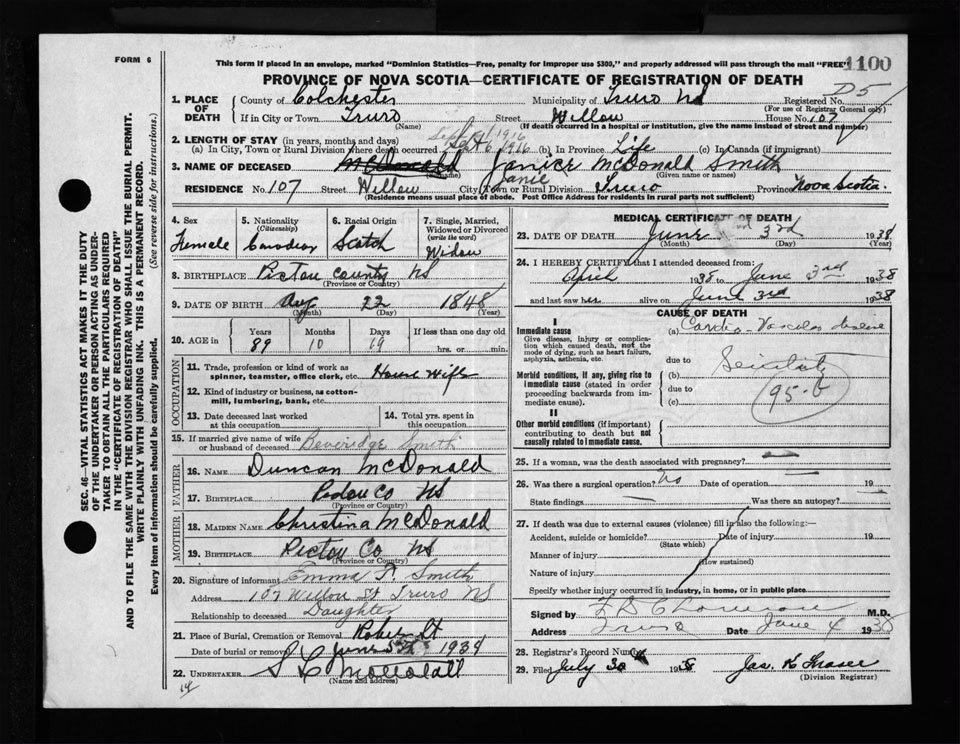 FORM 6
This form if placed in an envelope, marked "Dominion Statistics—Free, penalty for improper use $300," and properly addressed will pass through the mail "FREE"
1100
PROVINCE OF NOVA SCOTIA—CERTIFICATE OF REGISTRATION OF DEATH
1. PLACE OF DEATH
County of Colchester Municipality of Truro NS Registered No.
(For use of Registrar General only)
If in City or Town Truro Street Willow House No. 107
(Name) (If death occurred in a hospital or institution, give the name instead of street and number)
2. LENGTH OF STAY (in years, months and days)
(a) In City, Town or Rural Division where death occurred Sept 6 1916 (b) in Province Life (c) in Canada (if immigrant)
3. NAME OF DECEASED McDonald Janice McDonald Smith
Janie (Given name or names)
RESIDENCE No. 107 Street Willow City, Town or Rural Division Truro Province Nova Scotia
(Residence means usual place of abode. Post Office Address for residents in rural parts not sufficient)
4. Sex
Female
5. Nationality
(Citizenship)
Canadian
6. Racial Origin
Scotch
7. Single, Married, Widowed or Divorced
(write the word)
Widow
8. BIRTHPLACE Pictou County NS
(Province or Country)
9. DATE OF BIRTH Aug 22 1848
(Month) (Day) (Year)
10. AGE in
Years Months Days If less than one day old
89 10 19 hrs. or min.
OCCUPATION
11. Trade, profession or kind of work as spinner, teamster, office clerk, etc. House Wife
12. Kind of industry or business, as cotton-mill, lumbering, bank, etc.
13. Date deceased last worked at this occupation
14. Total yrs. spent in this occupation
15. If married give name of wife or husband of deceased Beveridge Smith
FATHER
16. NAME Duncan McDonald
17. BIRTHPLACE Pictou Co NS
(Province or Country)
MOTHER
18. MAIDEN NAME Christina McDonald
19. BIRTHPLACE Pictou Co NS
(Province or Country)
20. Signature of informant Emma Smith
Address 107 Willow St Truro NS
Relationship to deceased Daughter
21. Place of Burial, Cremation or Removal
Date of burial or removal June 5th
22. UNDERTAKER
(Name and address)
MEDICAL CERTIFICATE OF DEATH
23. DATE OF DEATH June 3rd 1938
(Month) (Day) (Year)
24. I HEREBY CERTIFY that I attended deceased from:
April 1938 to June 3rd 1938
and last saw her alive on June 3rd 1938
CAUSE OF DEATH
I
Immediate cause
Give disease, injury or complication which caused death, not the mode of dying, such as heart failure, asphyxia, asthenia, etc.
(a) Cardio-Vascular disease
due to
Morbid conditions, if any, giving rise to immediate cause (stated in order proceeding backwards from immediate cause).
(b) Senility
due to
(c) 95-b
II
Other morbid conditions (if important) contributing to death but not causally related to immediate cause.
25. If a woman, was the death associated with pregnancy?
26. Was there a surgical operation? No Date of operation 19
State findings Was there an autopsy?
27. If death was due to external causes (violence) fill in also the following:
Accident, suicide or homicide? Date of injury 19
(State which)
Manner of injury
(How sustained)
Nature of injury
Specify whether injury occurred in industry, in home, or in public place
Signed by M.D.
Address Truro Date June 4 1938
28. Registrar's Record Number
29. Filed July 30 1938 Jas. K Fraser
(Division Registrar)
SEC. 46—VITAL STATISTICS ACT MAKES IT THE DUTY
OF THE UNDERTAKER OR PERSON ACTING AS UNDERTAKER TO OBTAIN ALL THE PARTICULARS REQUIRED
IN THE "CERTIFICATE OF REGISTRATION OF DEATH"
AND TO FILE THE SAME WITH THE DIVISION REGISTRAR WHO SHALL ISSUE THE BURIAL PERMIT.
WRITE PLAINLY WITH UNFADING INK. THIS IS A PERMANENT RECORD.
Every item of information should be carefully supplied. (See reverse side for instructions.)